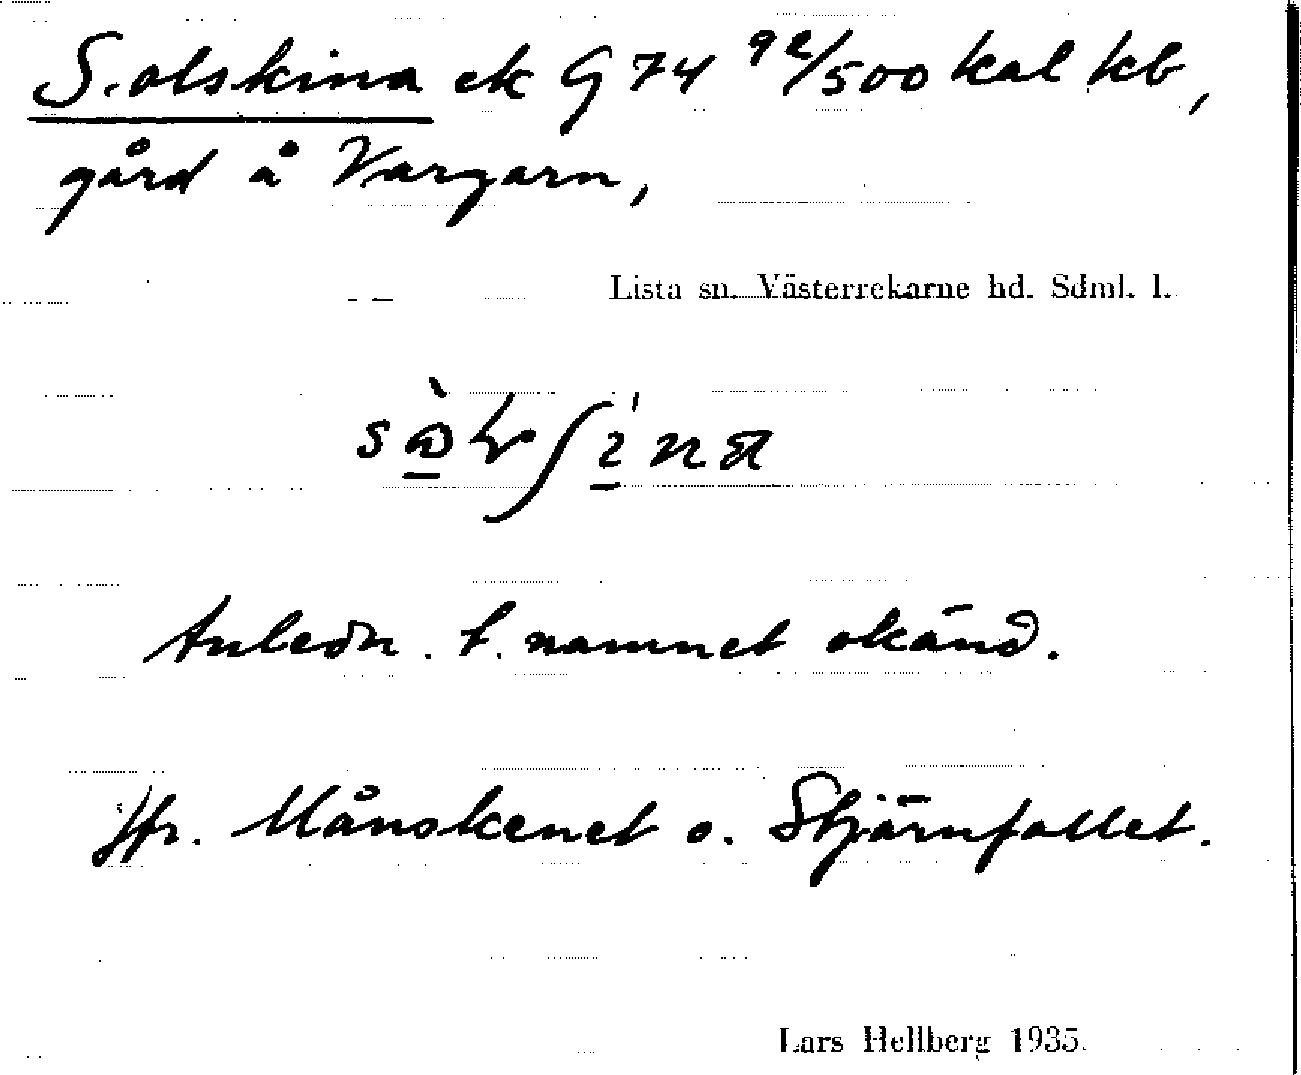 Solskina ek G 74 92/500 kal kb,
gård å Vargarn,
Lista sn. Västerrekarne hd. Sdml. l.
Anledn. t. namnet okänd.
Jfr. Månskenet o. Stjärnfallet.
Lars Hellberg 1935.